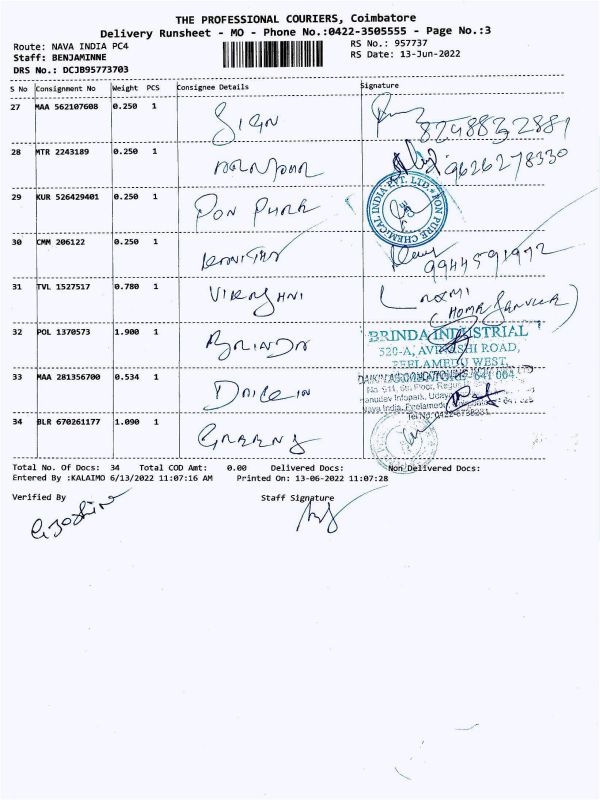 THE PROFESSIONAL COURIERS, Coimbatore
Delivery Runsheet - MO - Phone No.:0422-3505555 - Page No.:3
Route: NAVA INDIA PC4
RS No.: 957737
Staff: BENJAMINNE
RS Date: 13-Jun-2022
DRS No.: DCJB95773703
S No Consignment No Weight PCS Consignee Details Signature
27 MAA 562107608 0.250 1 SIGN 8248832889
28 MTR 2243189 0.250 1 9626278330
29 KUR 526429401 0.250 1 PON PURE
PON PURE CHEMICAL INDIA PVT. LTD.
30 CMM 206122 0.250 1 9944591972
31 TVL 1527517 0.780 1 Laxmi
(Home
32 POL 1370573 1.900 1 BRINDA
BRINDA INDUSTRIAL
520-A, AVINASHI ROAD,
PEELAMEDU WEST,
COIMBATORE - 641 004.
33 MAA 281356700 0.534 1 DAIKIN
34 BLR 670261177 1.090 1
Total No. Of Docs: 34 Total COD Amt: 0.00 Delivered Docs: Non Delivered Docs:
Entered By :KALAIMO 6/13/2022 11:07:16 AM Printed On: 13-06-2022 11:07:28
Verified By Staff Signature